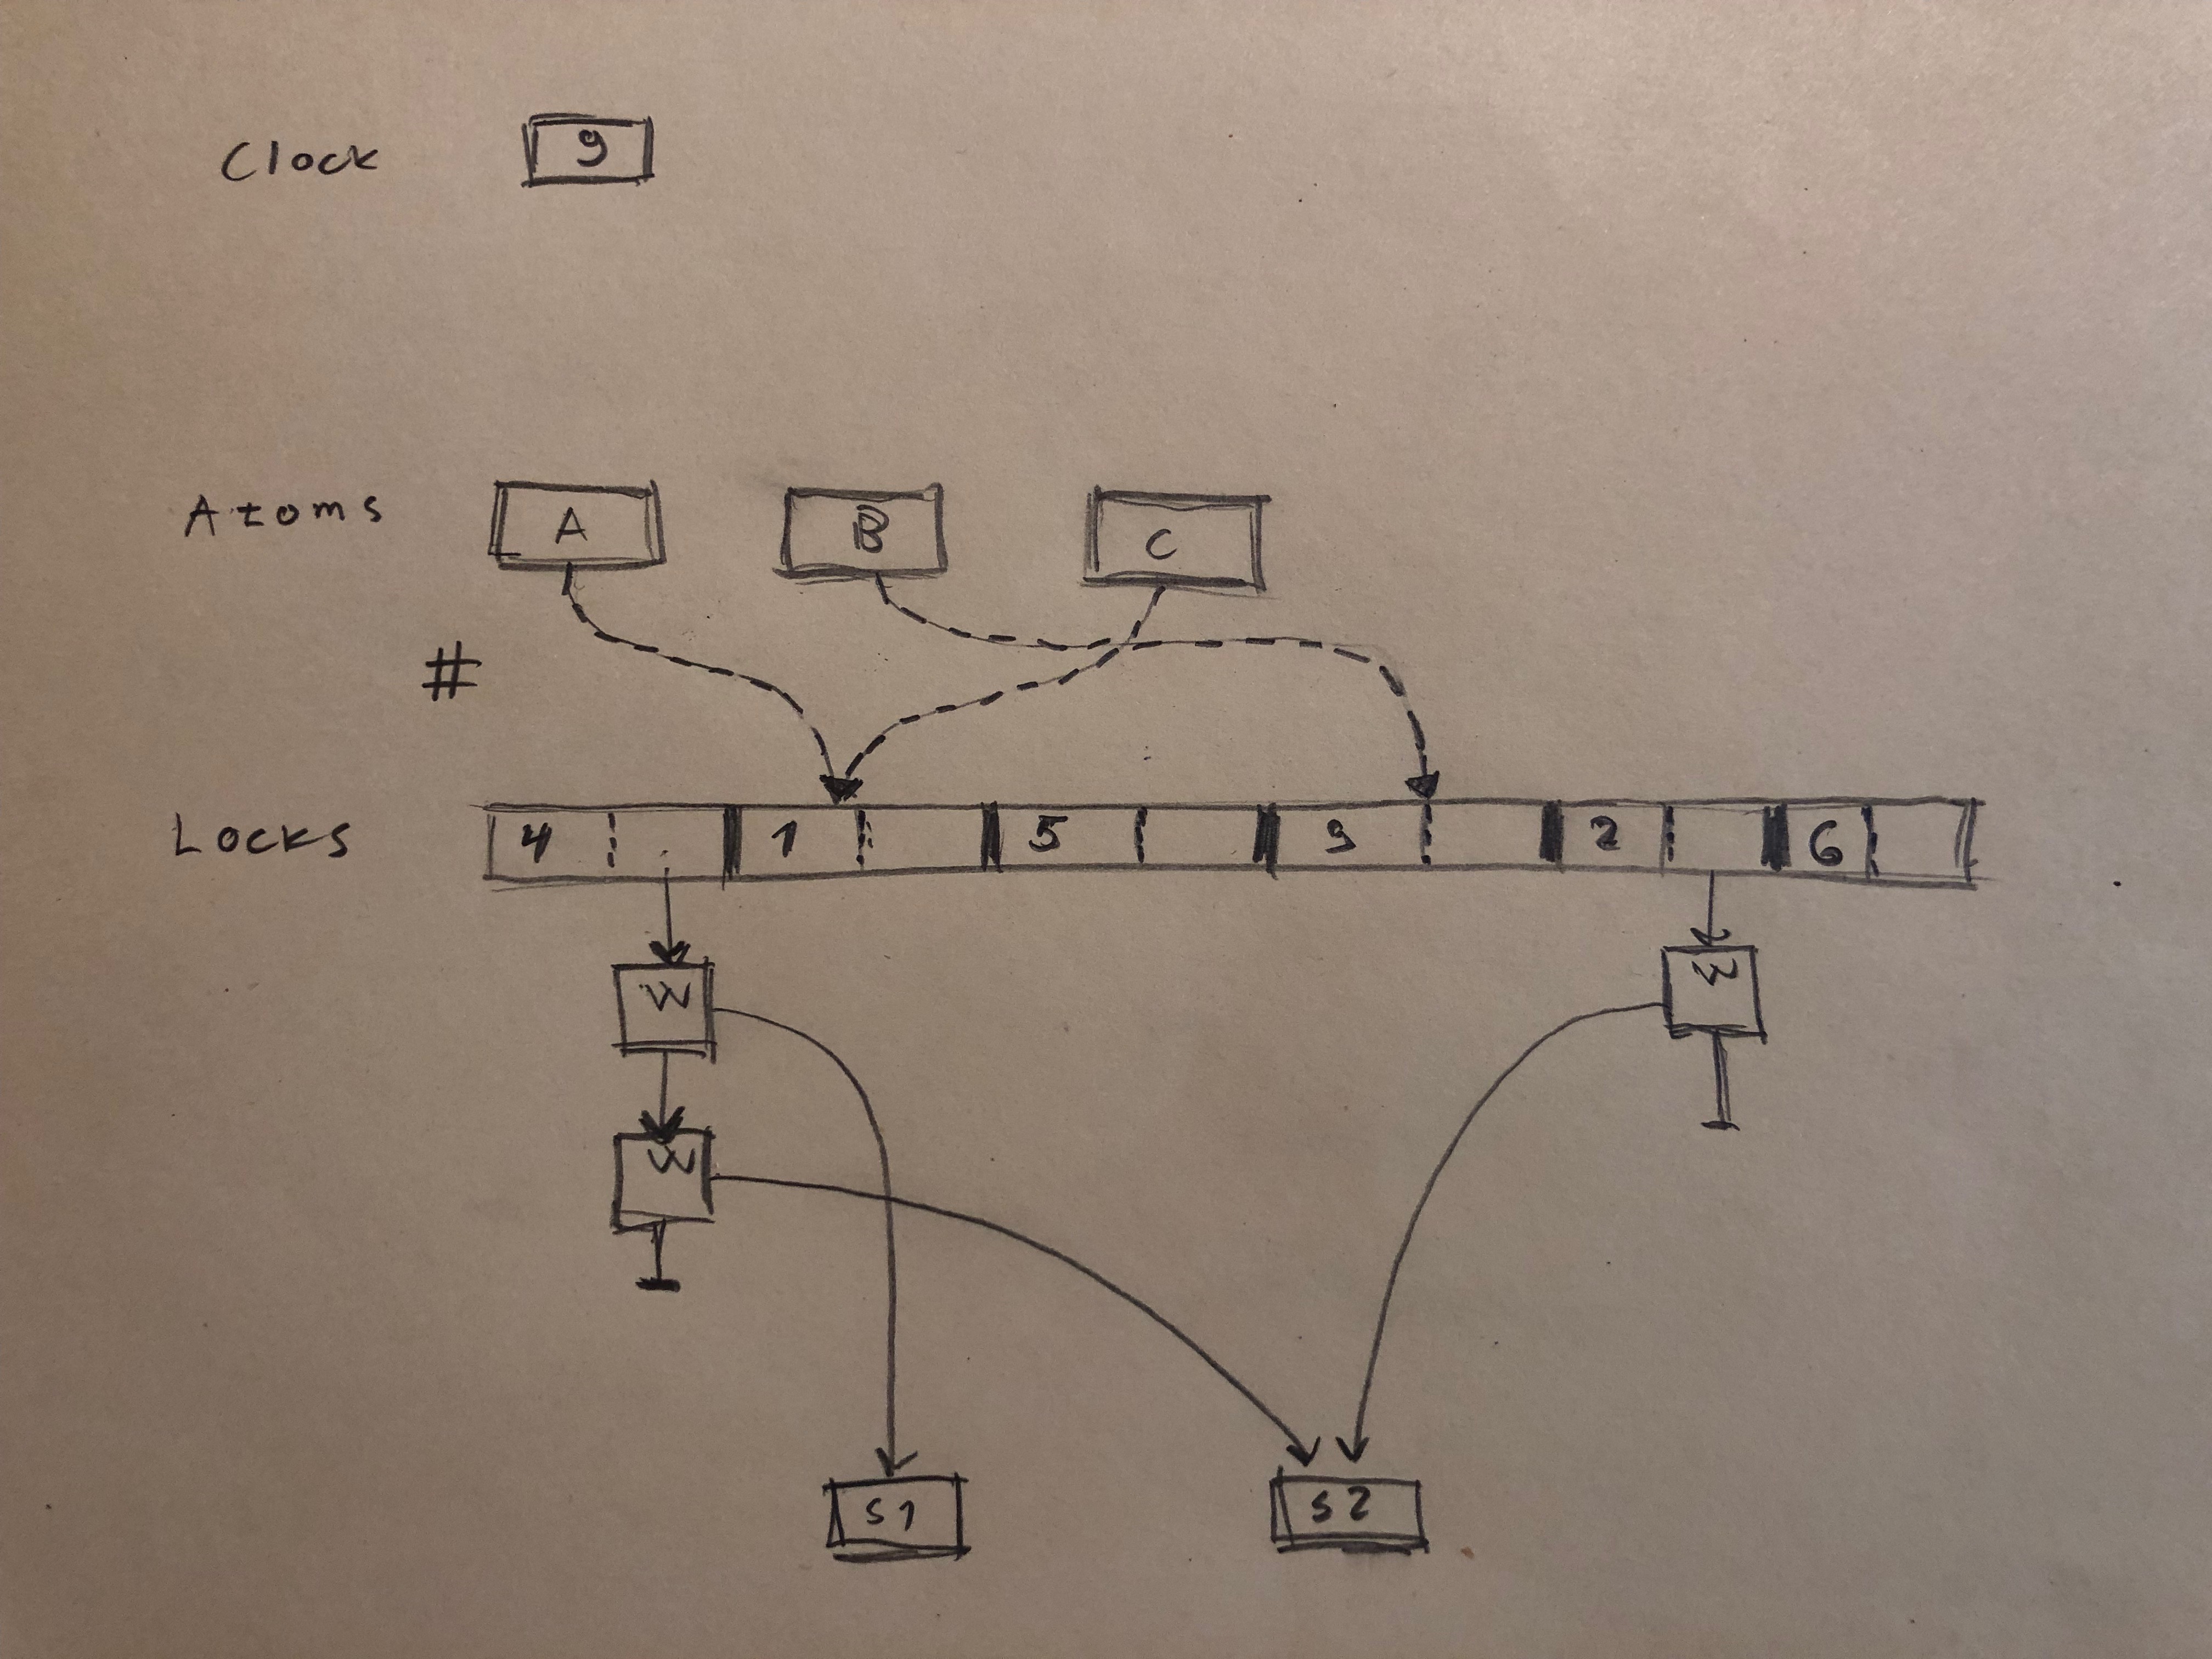 Clock 9
Atoms A B C
#
Locks 4 1 5 3 2 6
W W
W
S1 S2